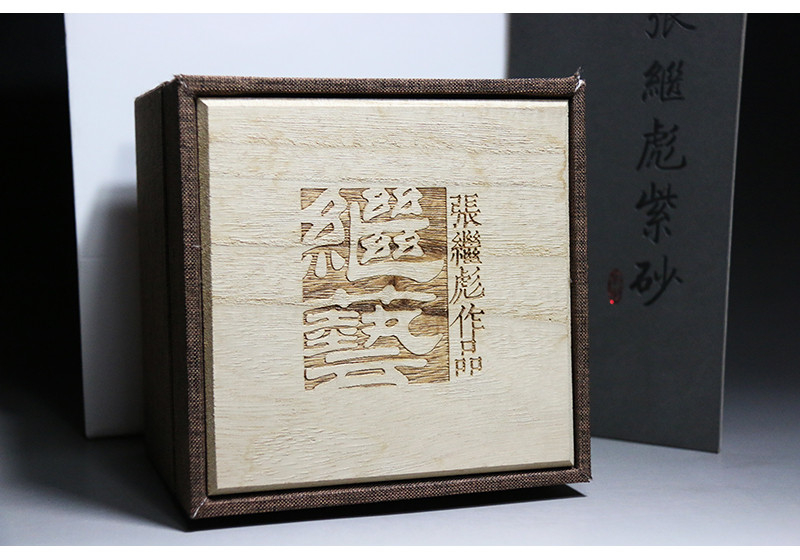 繼藝
張繼彪作品
張繼彪紫砂